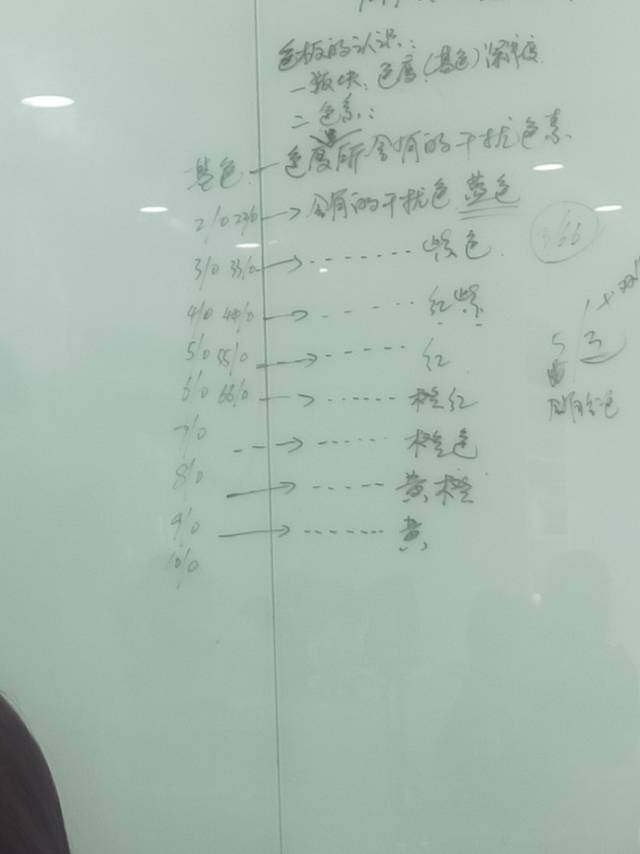 色板的认识:
一 板块: 色度(基色)深浅度
二 色素:
基色 — 色度所含有的干扰色素
2/0 22/0 → 含有的干扰色 蓝色
3/0 33/0 → ------- 紫色
4/0 44/0 → - - - - - 红紫
5/0 55/0 → - - - - - 红
6/0 66/0 → ------ 橙红
7/0 --→ ------ 橙色
8/0 → ------ 黄橙
9/0 → ------- 黄
10/0
3/66
5/3